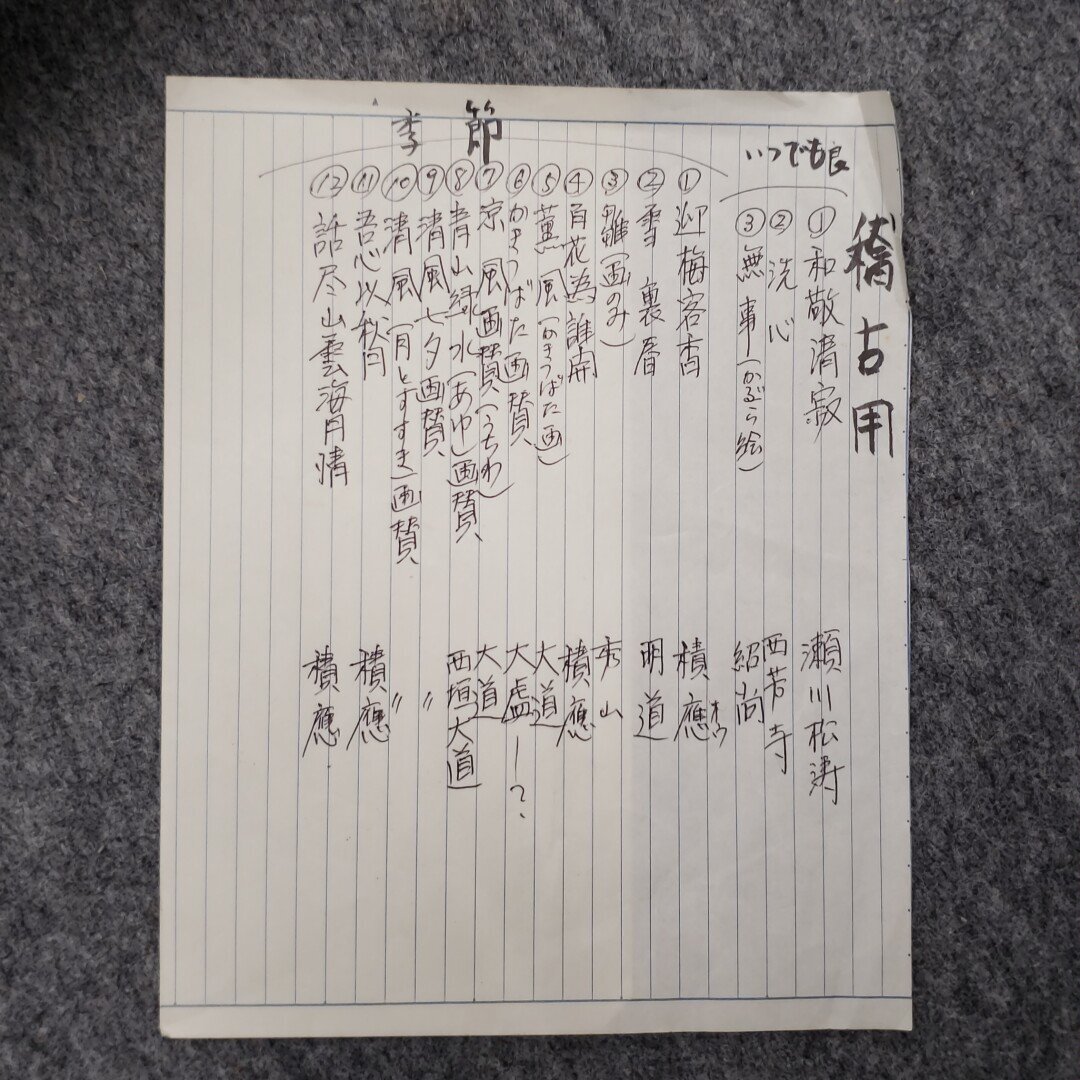 稽古用
いつでも良
①和敬清寂 瀬川松濤
②洗心 西芳寺
③無事(かぶら絵) 紹尚
季節
①迎梅客香 積應オウ
②雪裏春 明道
③雛(画のみ) 秀山
④百花為誰開 積應
⑤薫風(かきつばた画) 大道
⑥かきつばた画賛 大盧ー?
⑦涼風画賛(うちわ) 大道
⑧青山緑水(あゆ)画賛 西垣大道
⑨清風七夕画賛 〃
⑩清風(月とすすき)画賛 〃
⑪吾心似秋月 積應
⑫話尽山雲海月情 積應